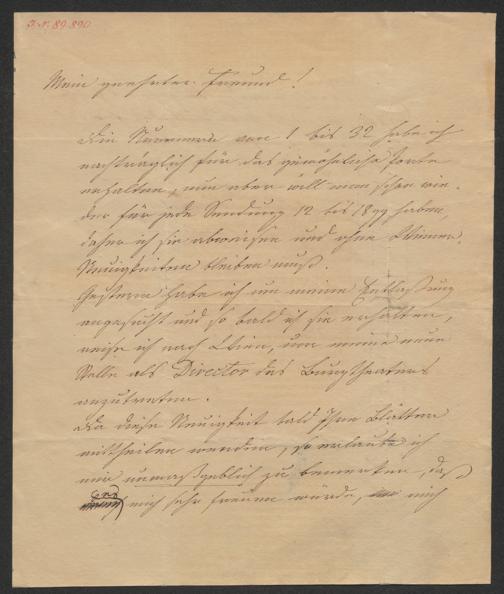 I.N. 89.890
Mein geehrter Freund!
Die Nummern von 1 bis 32 habe ich
nachträglich für das gewöhnliche Porto
erhalten, nun aber will man schon wie-
der für jede Sendung 12 bis 18 haben,
daher ich sie abweisen und ohne Wiener
Neuigkeiten bleiben muß.
Gestern habe ich um meine Entlassung
angesucht und so bald ich sie erhalten,
reise ich nach Wien, um meine neue
Stelle als Director des Burgtheaters
anzutreten.
Da diese Neuigkeit bald Ihre Blätter
mittheilen werden, so erlaube ich
mir unmaßgeblich zu bemerken, daß
es mich sehr freuen würde, mich